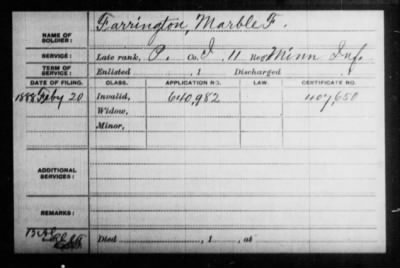 Farrington, Marble F.
NAME OF SOLDIER:
SERVICE: Late rank, P. Co. I, 11 Reg't Minn Inf.
TERM OF SERVICE: Enlisted , 1 Discharged , 1
DATE OF FILING. CLASS. APPLICATION NO. LAW. CERTIFICATE NO.
1888 Feby 20 Invalid, 640,982 407,650
Widow,
Minor,
ADDITIONAL SERVICES:
REMARKS:
Died , 1 , at